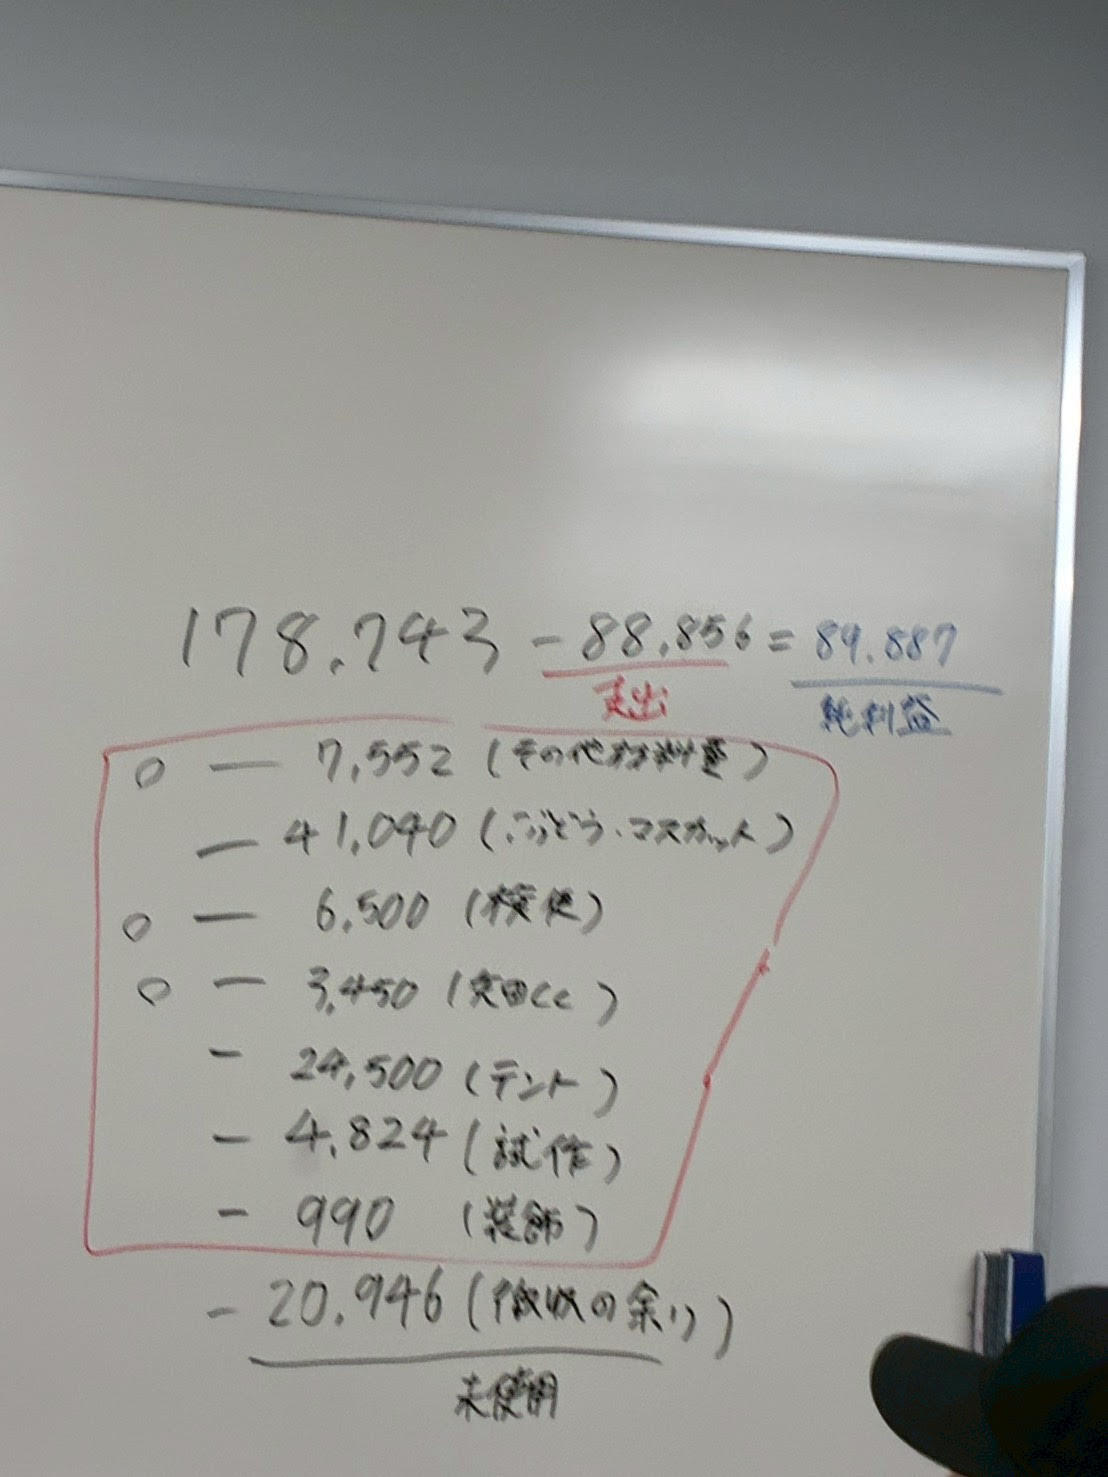 178.743 - 88.856 = 89.887
支出
純利益
○ ー 7,552 (その他材料費)
ー 41,040 (ぶどう・マスカット)
○ ー 6,500 (検便)
○ ー 3,450 (安田cc)
- 24,500 (テント)
- 4,824 (試作)
- 990 (装飾)
- 20.946 (徴収の余り)
未使用